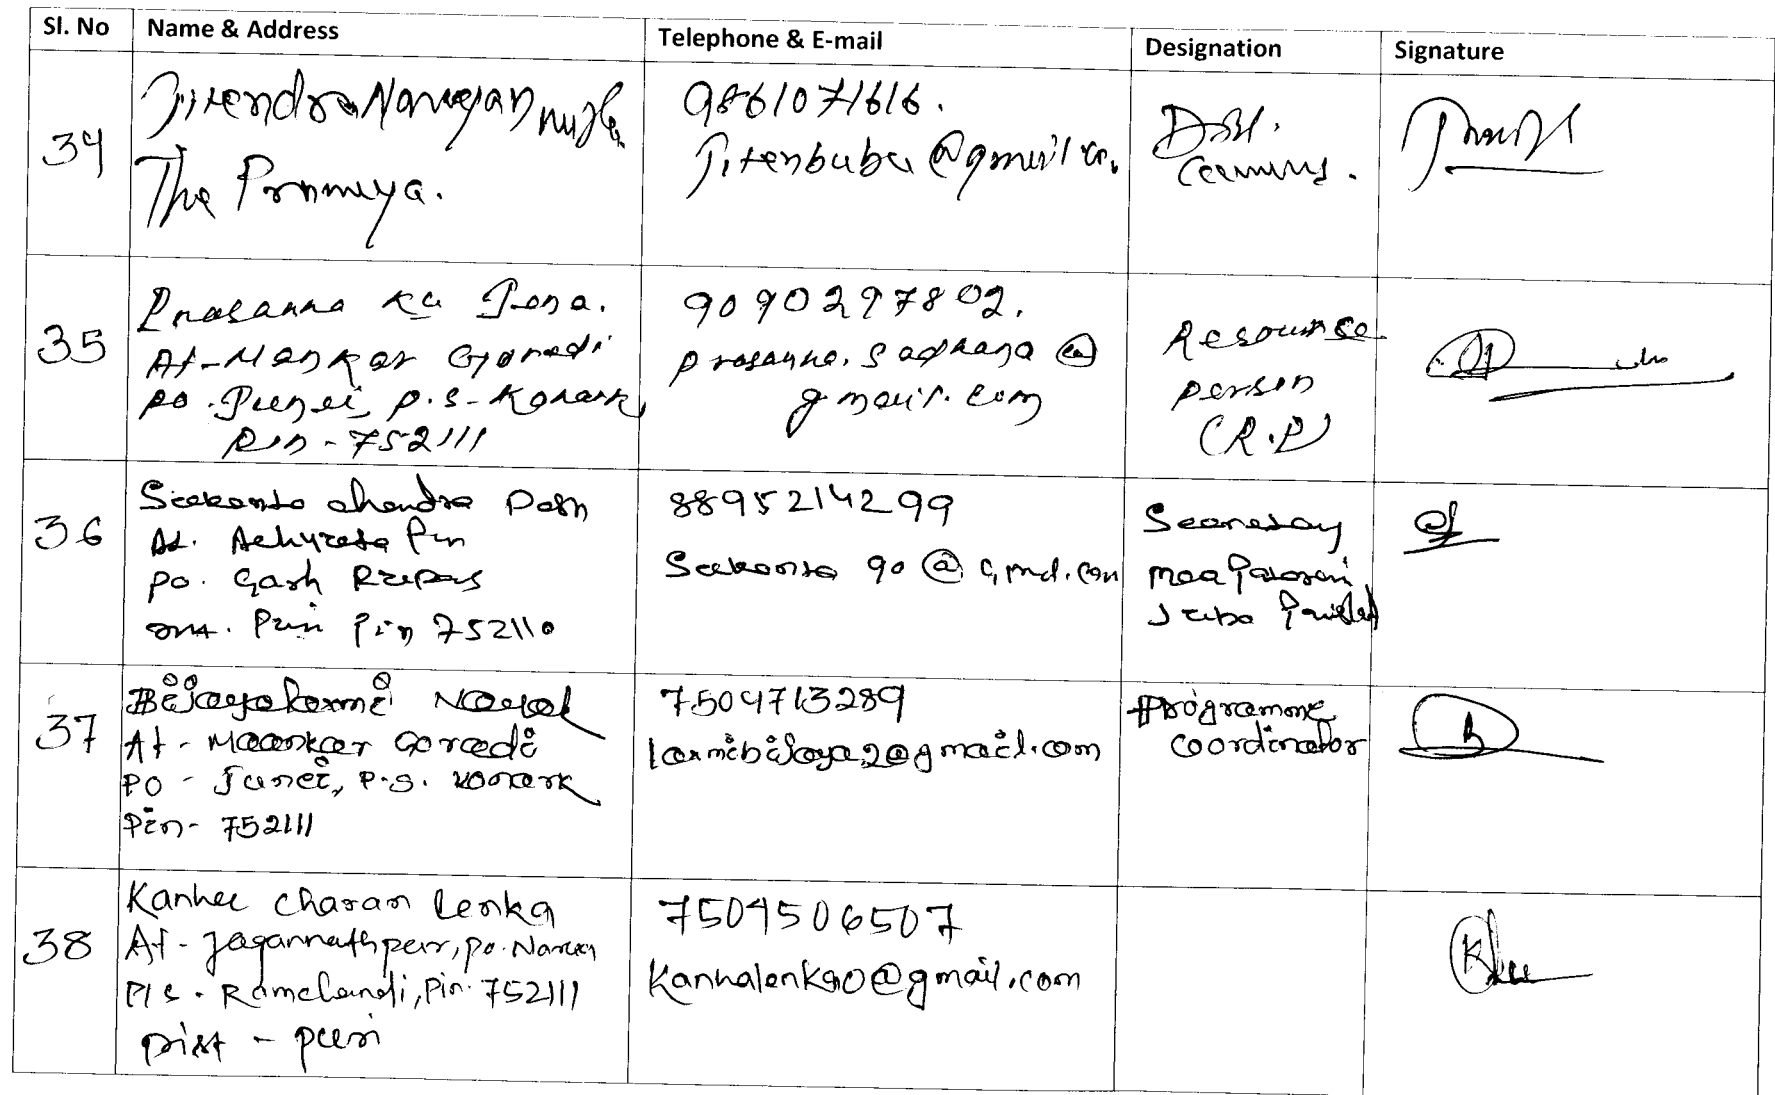 Sl. No Name & Address Telephone & E-mail Designation Signature
34
Jitendra Narayan
The Prameya.
9861071616.
Jitenbubu@gmail
Dist.
35
Prasanna Ku Jena.
At-Mankar Goradi
PO. Junei, P.S-Konark
Pin-752111
9090297802.
prasanna.sadhana@
gmail.com
Resource
person
(R.P)
36
Seekanta chandra Dash
At. Achyuta Pur
po. Gash
Puri Pin 752110
8895214299
Seekanta 90@
Secretary
Maa
37
Bijayalaxmi Nayak
At - Maankar Goradi
PO - Junei, P.S. Konark
Pin- 752111
7504713289
laxmibijaya2@gmail.com
Programme
Coordinator
38
Kanhei Charan Lenka
At - Jagannathpur, po. Narua
P/S. Ramchandi, Pin. 752111
Dist - puri
7504506507
Kanhalenka0@gmail.com